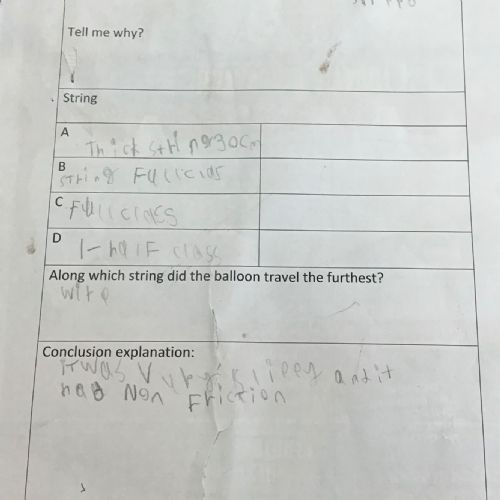 Tell me why?
String
A
Thick string 30cm
B
string Fullclas
C
Fullclass
D
1-half class
Along which string did the balloon travel the furthest?
wire
Conclusion explanation:
it was slippy and it
had Non Friction